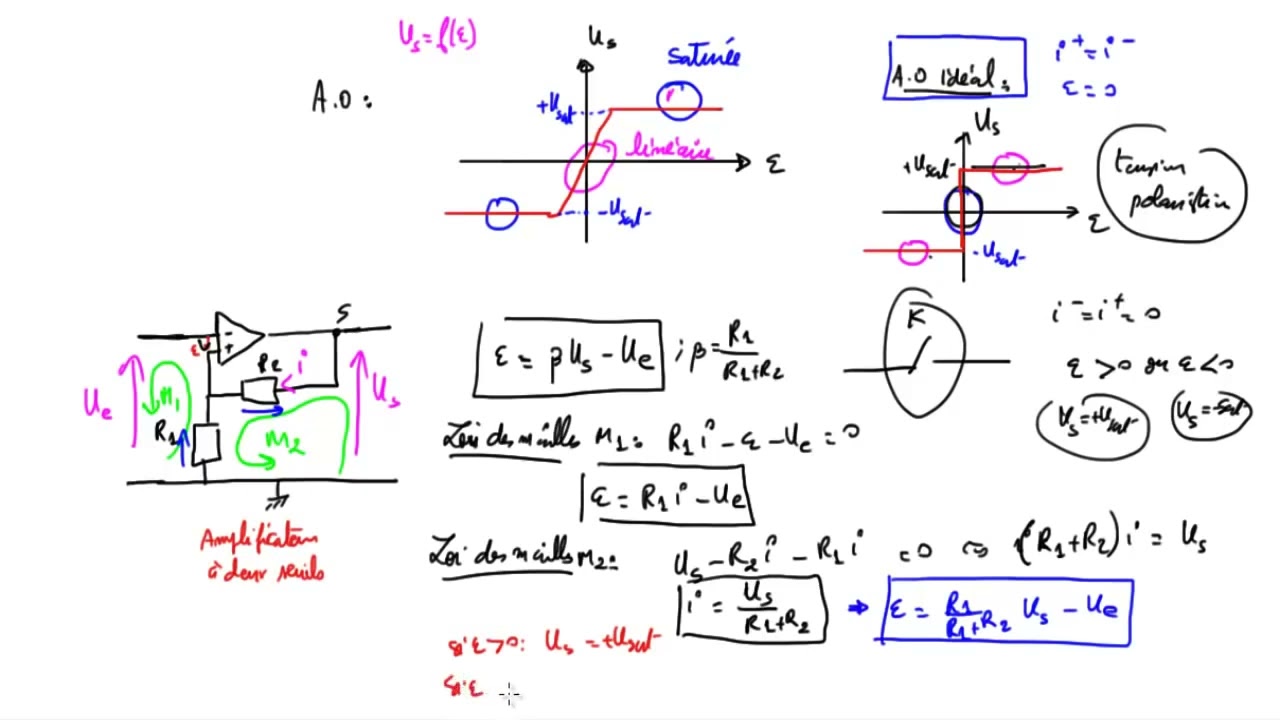 Us = f(ε)
A.O :
Us
saturée
+Usat
linéaire
ε
-Usat
A.O idéal :
i⁺ = i⁻
ε = 0
Us
+Usat
ε
-Usat
tension
S
ε
-
+
R2
i
Ue
M1
R1
M2
Us
Amplificateur
à deux seuils
ε = β Us - Ue ; β = R1/(R1+R2)
K
i⁻ = i⁺ = 0
ε > 0 ou ε < 0
Us = +Usat
Us = -sat
Loi des mailles M1 : R1 i - ε - Ue = 0
ε = R1 i - Ue
Loi des mailles M2 : Us - R2 i - R1 i = 0 ⇔ (R1+R2) i = Us
i = Us/(R1+R2) ➡ ε = R1/(R1+R2) Us - Ue
si ε > 0 : Us = +Usat
si ε